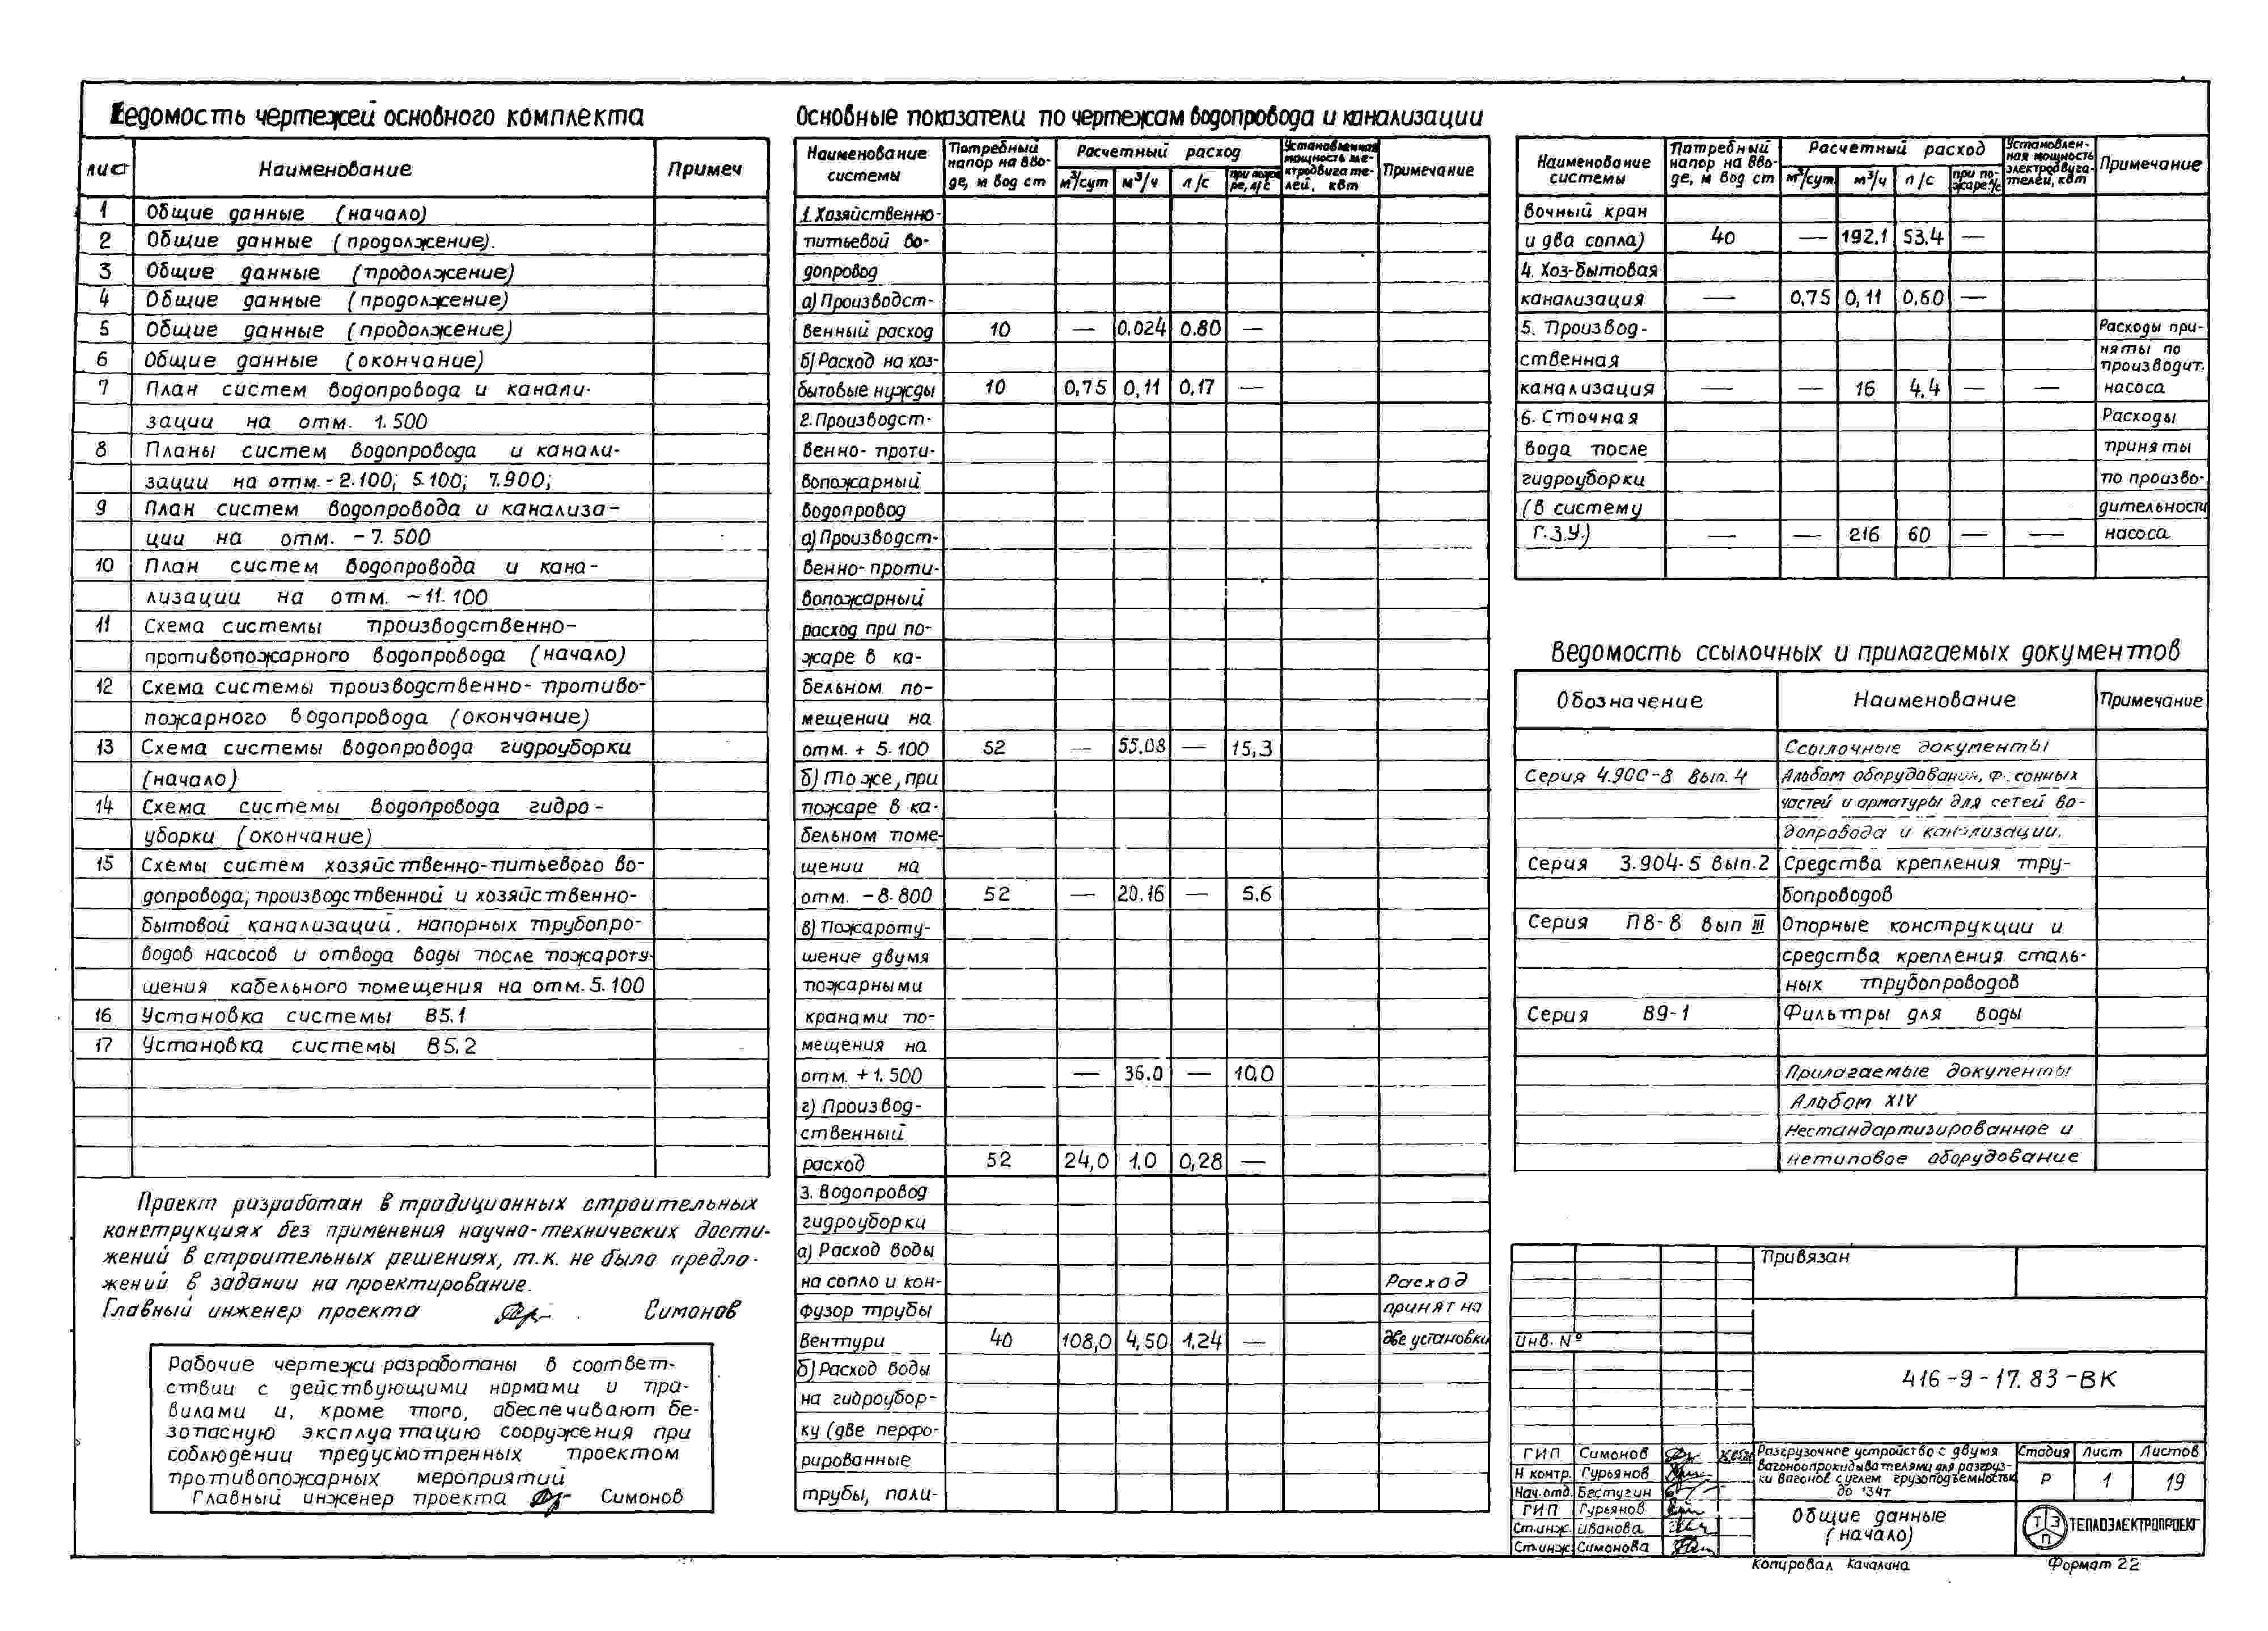 Ведомость чертежей основного комплекта
лист Наименование Примеч
1 Общие данные (начало)
2 Общие данные (продолжение).
3 Общие данные (продолжение)
4 Общие данные (продолжение)
5 Общие данные (продолжение)
6 Общие данные (окончание)
7 План систем водопровода и канали-
зации на отм. 1.500
8 Планы систем водопровода и канали-
зации на отм. -2.100; 5.100; 7.900;
9 План систем водопровода и канализа-
ции на отм. -7.500
10 План систем водопровода и кана-
лизации на отм. -11.100
11 Схема системы производственно-
противопожарного водопровода (начало)
12 Схема системы производственно-противо-
пожарного водопровода (окончание)
13 Схема системы водопровода гидроуборки
(начало)
14 Схема системы водопровода гидро-
уборки (окончание)
15 Схемы систем хозяйственно-питьевого во-
допровода; производственной и хозяйственно-
бытовой канализаций, напорных трубопро-
водов насосов и отвода воды после пожароту-
шения кабельного помещения на отм. 5.100
16 Установка системы В5.1
17 Установка системы В5.2
Проект разработан в традиционных строительных
конструкциях без применения научно-технических дости-
жений в строительных решениях, т.к. не было предло-
жений в задании на проектирование.
Главный инженер проекта Симонов
Рабочие чертежи разработаны в соответ-
ствии с действующими нормами и пра-
вилами и, кроме того, обеспечивают бе-
зопасную эксплуатацию сооружения при
соблюдении предусмотренных проектом
противопожарных мероприятий
Главный инженер проекта Симонов
Основные показатели по чертежам водопровода и канализации
Наименование системы Потребный напор на вво-де, м вод ст Расчетный расход м³/сут м³/ч л/с при пожа-ре, л/с Установленная мощность эле-ктродвигате-лей, квт Примечание
1. Хозяйственно-
питьевой во-
допровод
а) Производст-
венный расход 10 — 0.024 0.80 —
б) Расход на хоз-
бытовые нужды 10 0,75 0,11 0,17 —
2. Производст-
венно-проти-
вопожарный
водопровод
а) Производст-
венно-проти-
вопожарный
расход при по-
жаре в ка-
бельном по-
мещении на
отм. + 5.100 52 — 55.08 — 15,3
б) То же, при
пожаре в ка-
бельном поме-
щении на
отм. -8.800 52 — 20.16 — 5.6
в) Пожароту-
шение двумя
пожарными
кранами по-
мещения на
отм. +1.500 — 36.0 — 10.0
г) Производ-
ственный
расход 52 24,0 1.0 0,28 —
3. Водопровод
гидроуборки
а) Расход воды
на сопло и кон- Расход
фузор трубы принят на
Вентури 40 108,0 4,50 1,24 — две установки
б) Расход воды
на гидроубор-
ку (две перфо-
рированные
трубы, поли-
Наименование системы Потребный напор на вво-де, м вод ст Расчетный расход м³/сут м³/ч л/с при по-жаре л/с Установлен-ная мощность электродвига-телей, квт Примечание
вочный кран
и два сопла) 40 — 192.1 53.4 —
4. Хоз-бытовая
канализация — 0,75 0,11 0,60 —
5. Производ- Расходы при-
ственная няты по производит.
канализация — — 16 4.4 — — насоса
6. Сточная Расходы
вода после приняты
гидроуборки по произво-
(в систему дительности
Г.З.У.) — — 216 60 — — насоса
Ведомость ссылочных и прилагаемых документов
Обозначение Наименование Примечание
Ссылочные документы
Серия 4.900-8 вып. 4 Альбом оборудования, фасонных
частей и арматуры для сетей во-
допровода и канализации.
Серия 3.904-5 вып.2 Средства крепления тру-
бопроводов
Серия П8-8 вып III Опорные конструкции и
средства крепления сталь-
ных трубопроводов
Серия В9-1 Фильтры для воды
Прилагаемые документы
Альбом XIV
Нестандартизированное и
нетиповое оборудование
Привязан
Инв. №
416-9-17.83-ВК
ГИП Симонов
Н контр. Гурьянов
Нач.отд. Бестугин
ГИП Гурьянов
Ст.инж. Иванова
Ст.инж. Симонова
Разгрузочное устройство с двумя
вагоноопрокидывателями для разгруз-
ки вагонов с углем грузоподъемностью
до 134т
Стадия Лист Листов
Р 1 19
Общие данные
(начало)
ТЭП ТЕПЛОЭЛЕКТРОПРОЕКТ
Копировал Качалина Формат 22